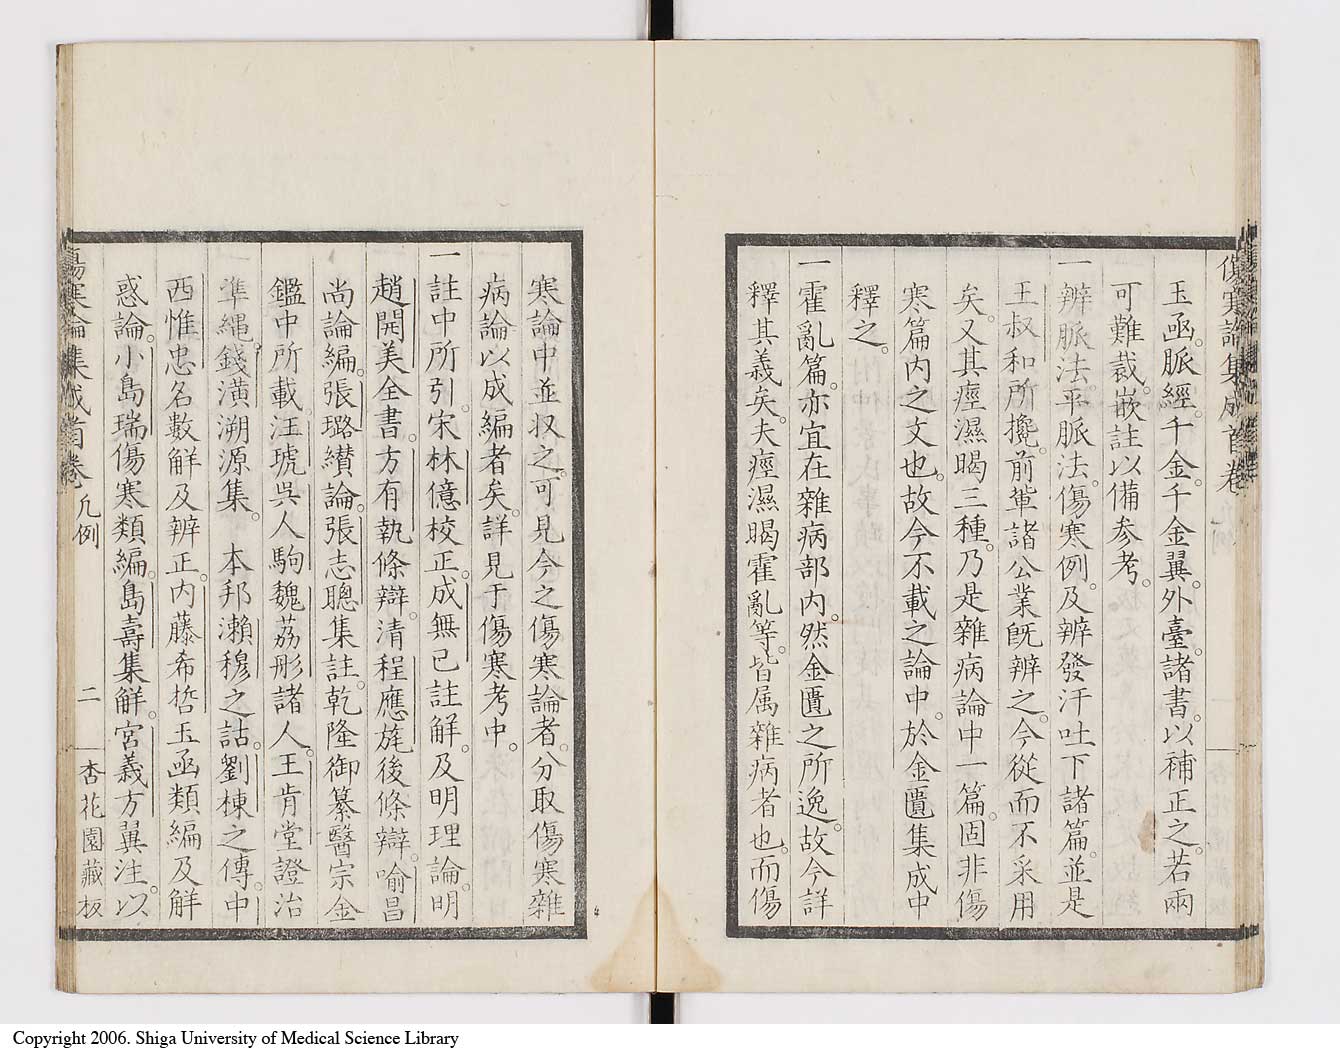 傷寒論集成首卷
玉函。脈經。千金。千金翼。外臺。諸書。以補正之。若兩
可難裁。嵌註以備參考。
一辨脈法。平脈法。傷寒例。及辨發汗吐下諸篇。並是
王叔和所攙。前輩諸公業既辨之。今從而不采用
矣。又其痙濕暍三種。乃是雜病論中一篇。固非傷
寒篇内之文也。故今不載之論中。於金匱集成中
釋之。
一霍亂篇。亦宜在雜病部内。然金匱之所逸。故今詳
釋其義矣。夫痙濕暍霍亂等。皆属雜病者也。而傷
寒論中並収之。可見今之傷寒論者。分取傷寒雜
病論以成編者矣。詳見于傷寒考中。
一註中所引。宋林億校正。成無已註解。及明理論。明
趙開美全書。方有執條辯。清程應旄後條辯。喻昌
尚論編。張璐纉論。張志聰集註。乾隆御纂醫宗金
鑑中所載汪琥吳人駒魏荔彤諸人。王肯堂證治
準繩。錢潢溯源集。 本邦瀨穆之詁。劉棟之傳。中
西惟忠名數解及辨正。内藤希哲玉函類編及解
惑論。小島瑞傷寒類編。島壽集解。宮義方翼注。以
傷寒論集成首卷 凡例 二 杏花園藏板
Copyright 2006. Shiga University of Medical Science Library